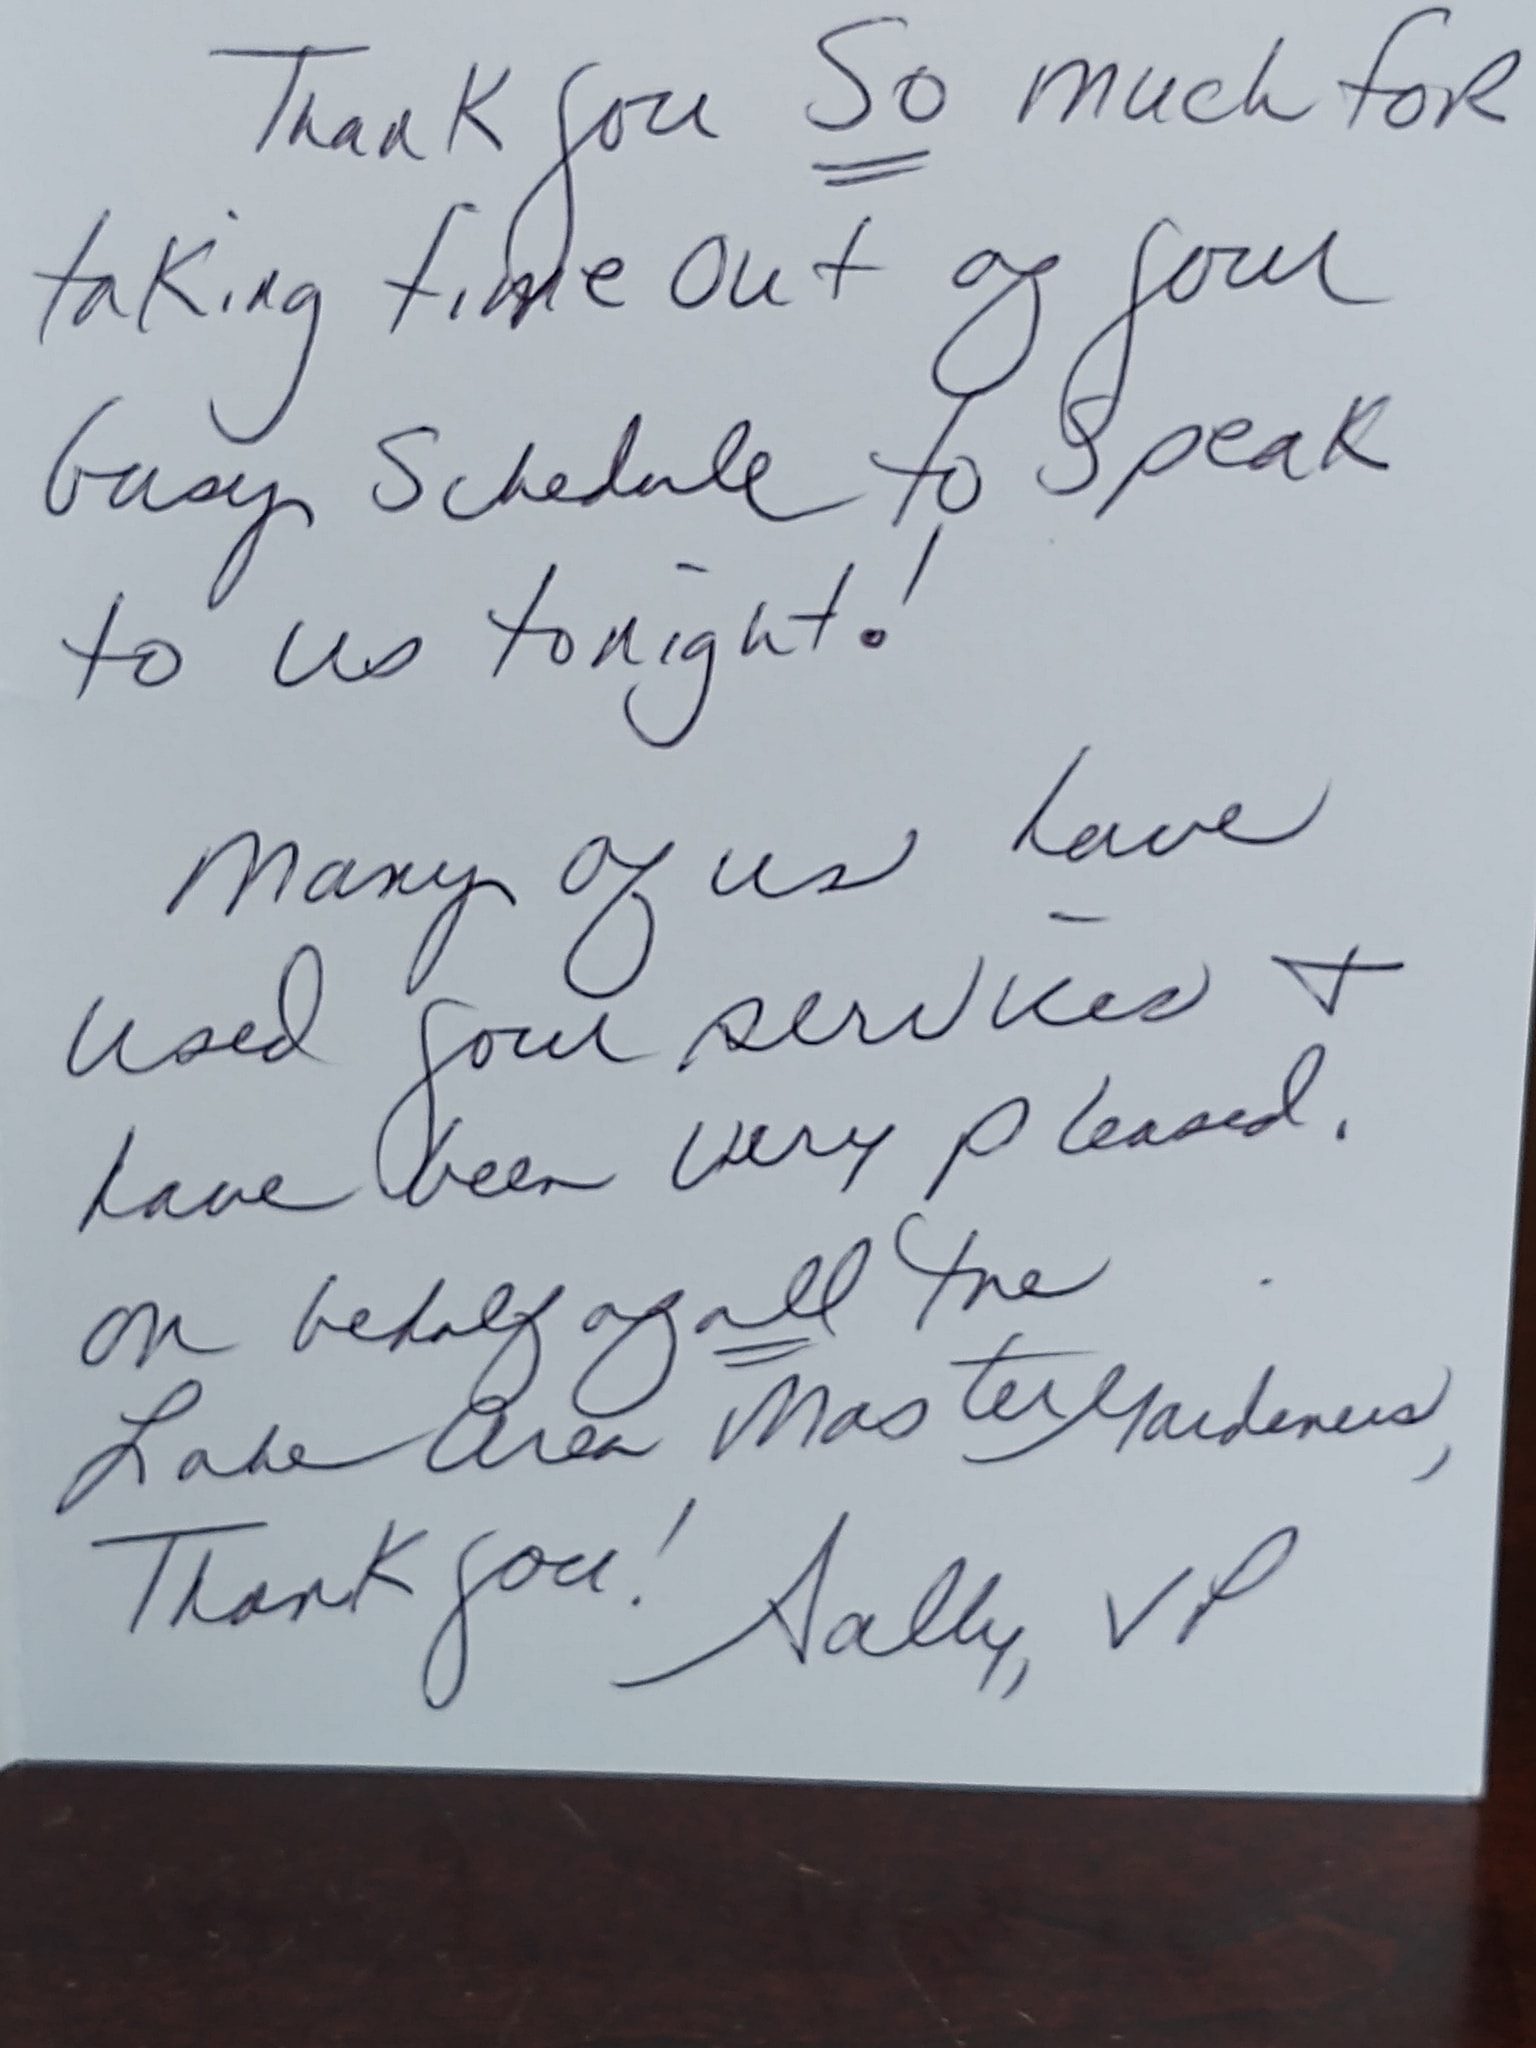 Thank you So much for
taking time out of your
busy Schedule to Speak
to us tonight!
Many of us have
used your services +
have been very pleased.
on behalf of all the
Lake Area Master Gardeners,
Thank you! Sally, VP